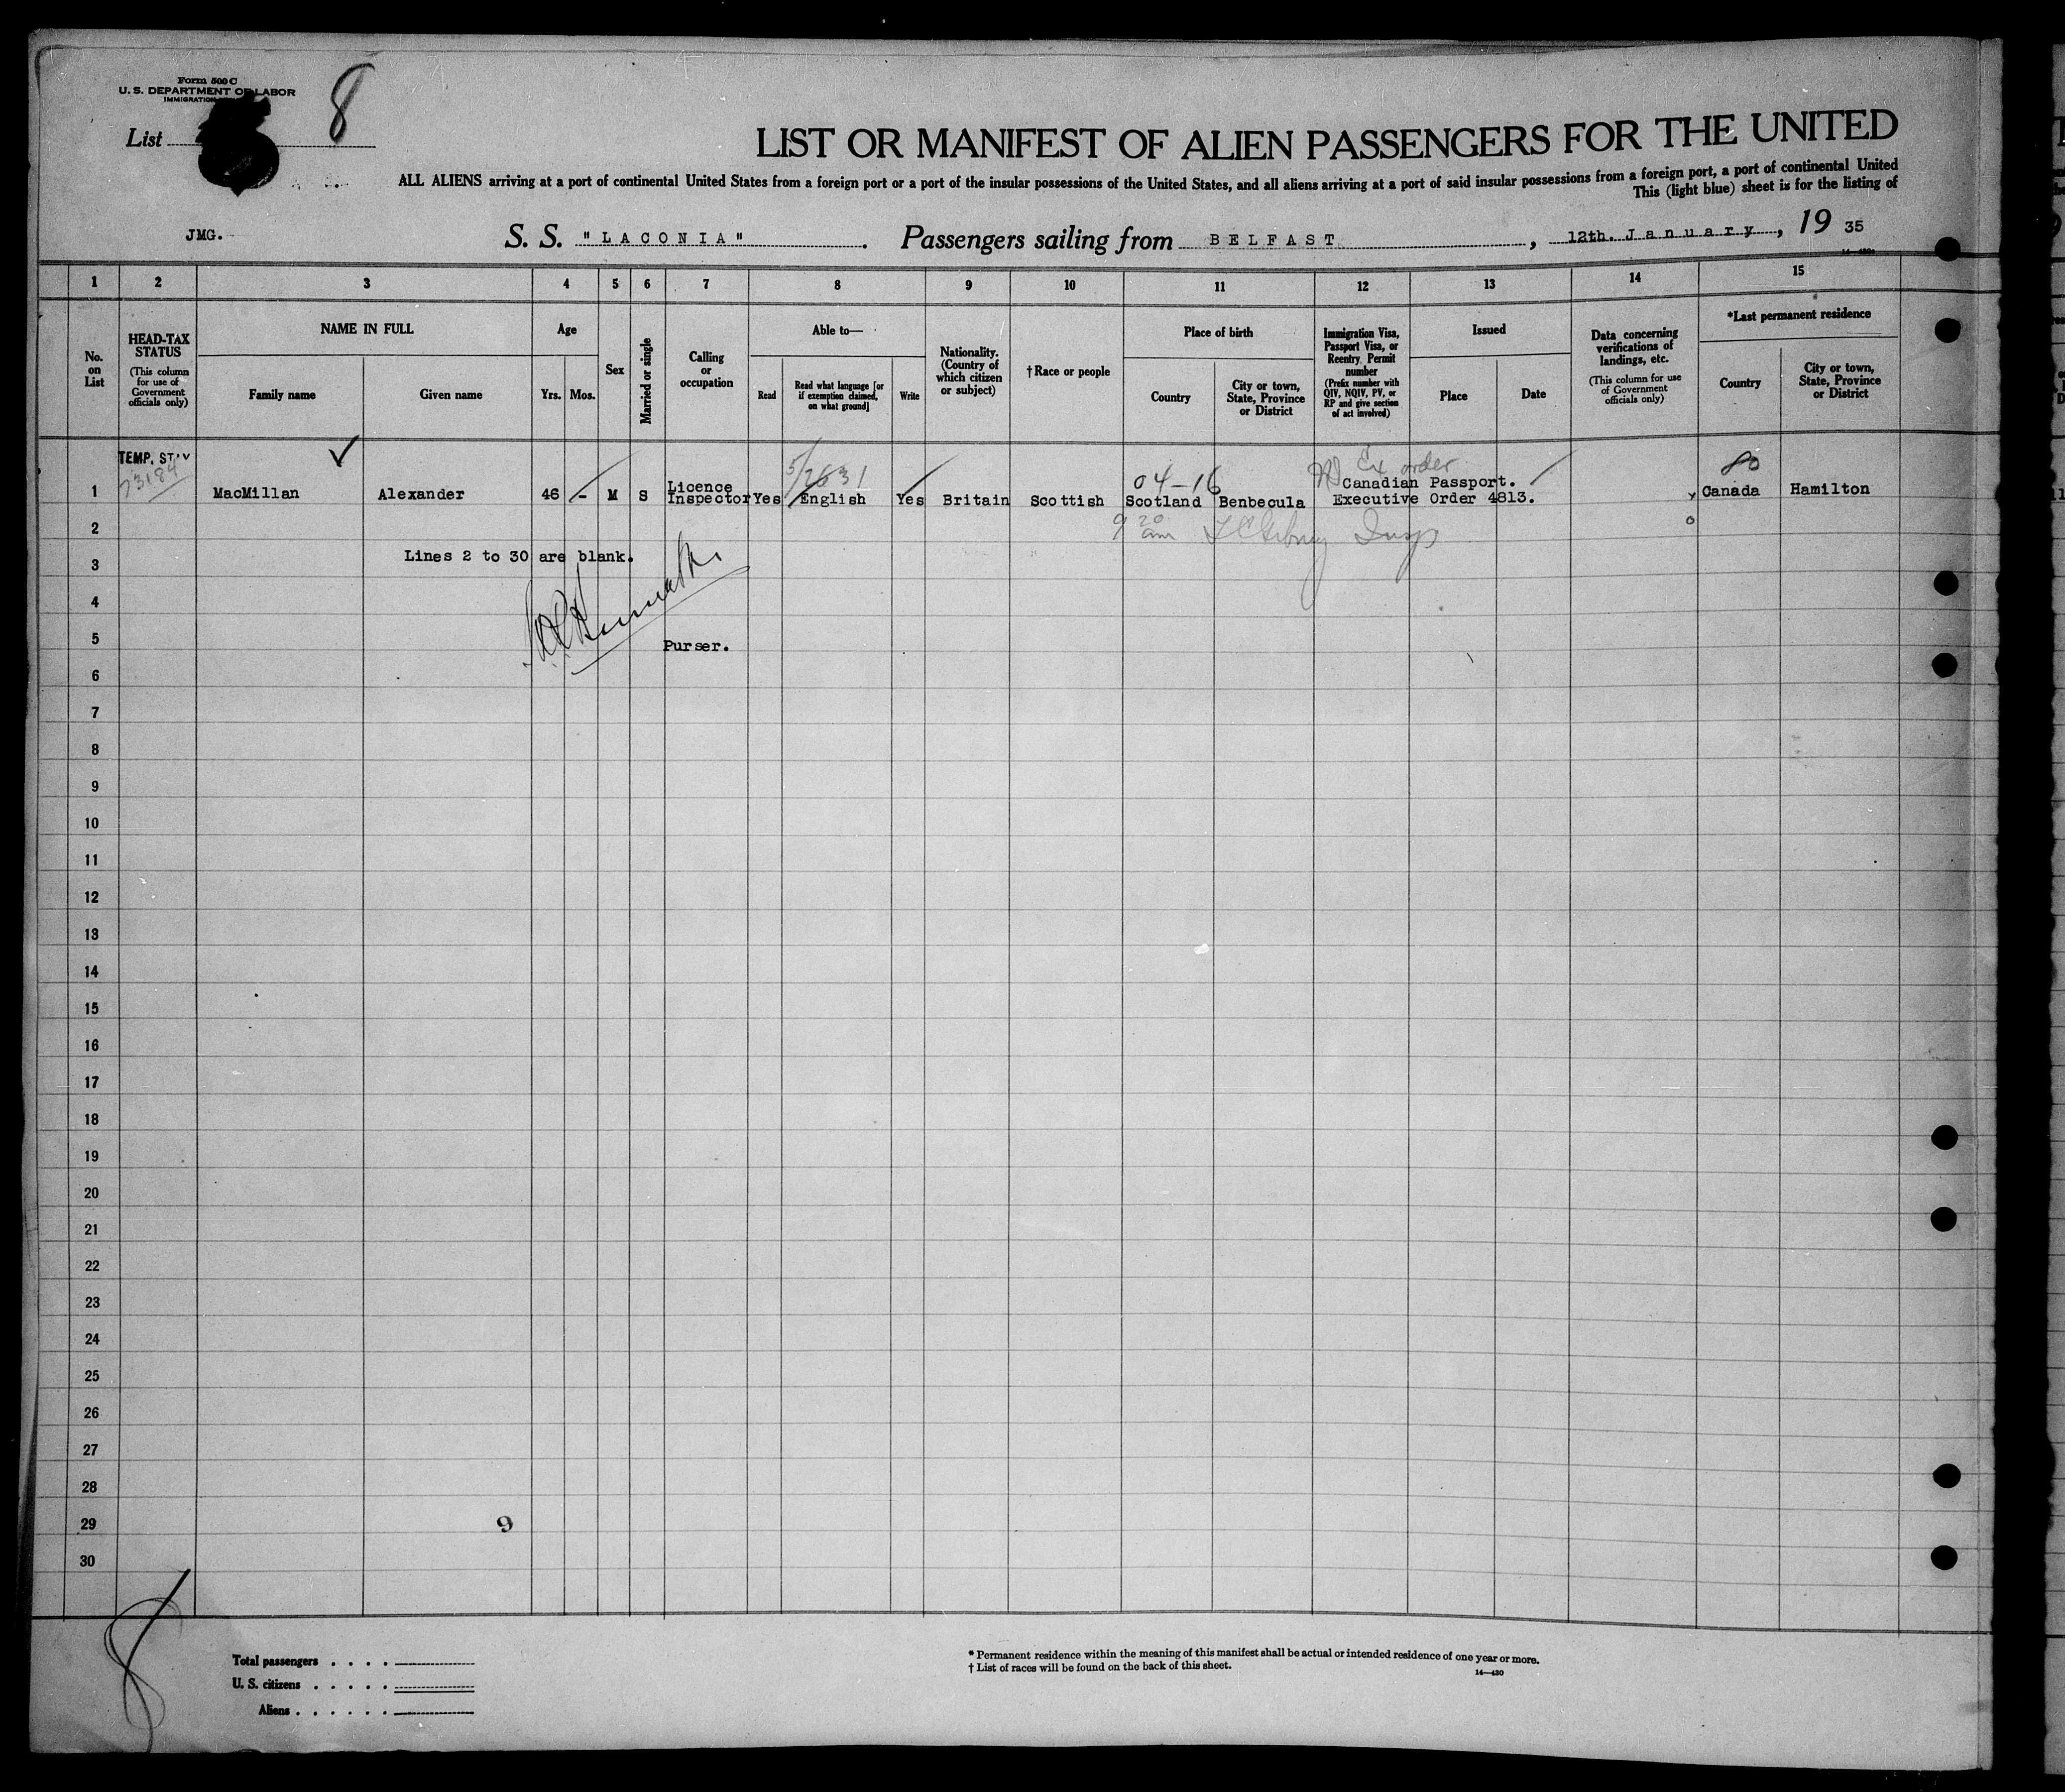 Form 500 C
U. S. DEPARTMENT OF LABOR
IMMIGRATION
List 8
LIST OR MANIFEST OF ALIEN PASSENGERS FOR THE UNITED
ALL ALIENS arriving at a port of continental United States from a foreign port or a port of the insular possessions of the United States, and all aliens arriving at a port of said insular possessions from a foreign port, a port of continental United
This (light blue) sheet is for the listing of
JMG.
S. S. "LACONIA". Passengers sailing from BELFAST, 12th. January, 19 35
1 2 3 4 5 6 7 8 9 10 11 12 13 14 15
No. on List
HEAD-TAX STATUS
(This column for use of Government officials only)
NAME IN FULL
Family name
Given name
Age
Yrs. Mos.
Sex
Married or single
Calling or occupation
Able to—
Read
Read what language [or if exemption claimed, on what ground]
Write
Nationality. (Country of which citizen or subject)
†Race or people
Place of birth
Country
City or town, State, Province or District
Immigration Visa, Passport Visa, or Reentry Permit number
(Prefix number with QIV, NQIV, PV, or RP and give section of act involved)
Issued
Place
Date
Data concerning verifications of landings, etc.
(This column for use of Government officials only)
*Last permanent residence
Country
City or town, State, Province or District
TEMP. STAY
73184
5/2631
04-16
Ex order
80
1 MacMillan Alexander 46 - M S Licence Inspector Yes English Yes Britain Scottish Scotland Benbecula Canadian Passport. Executive Order 4813. Canada Hamilton
2
9 20 am Insp
Lines 2 to 30 are blank.
3
4
5
Purser.
6
7
8
9
10
11
12
13
14
15
16
17
18
19
20
21
22
23
24
25
26
27
28
29
9
30
8
Total passengers . . . .
U. S. citizens . . . . .
Aliens . . . . . .
* Permanent residence within the meaning of this manifest shall be actual or intended residence of one year or more.
† List of races will be found on the back of this sheet.
14—430